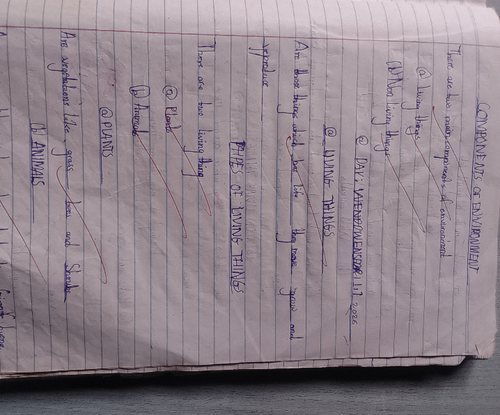 COMPONENTS OF ENVIRONMENT
There are two main components of environment
(a) Living things
(b) Non living things
(a) LIVING THINGS
Are those things which has life they move grow and
reproduce
TYPES OF LIVING THINGS
There are two living thing
(a) Plants
(b) Animals
(a) PLANTS
Are vegetations like grass trees and Shrub
(b) ANIMALS